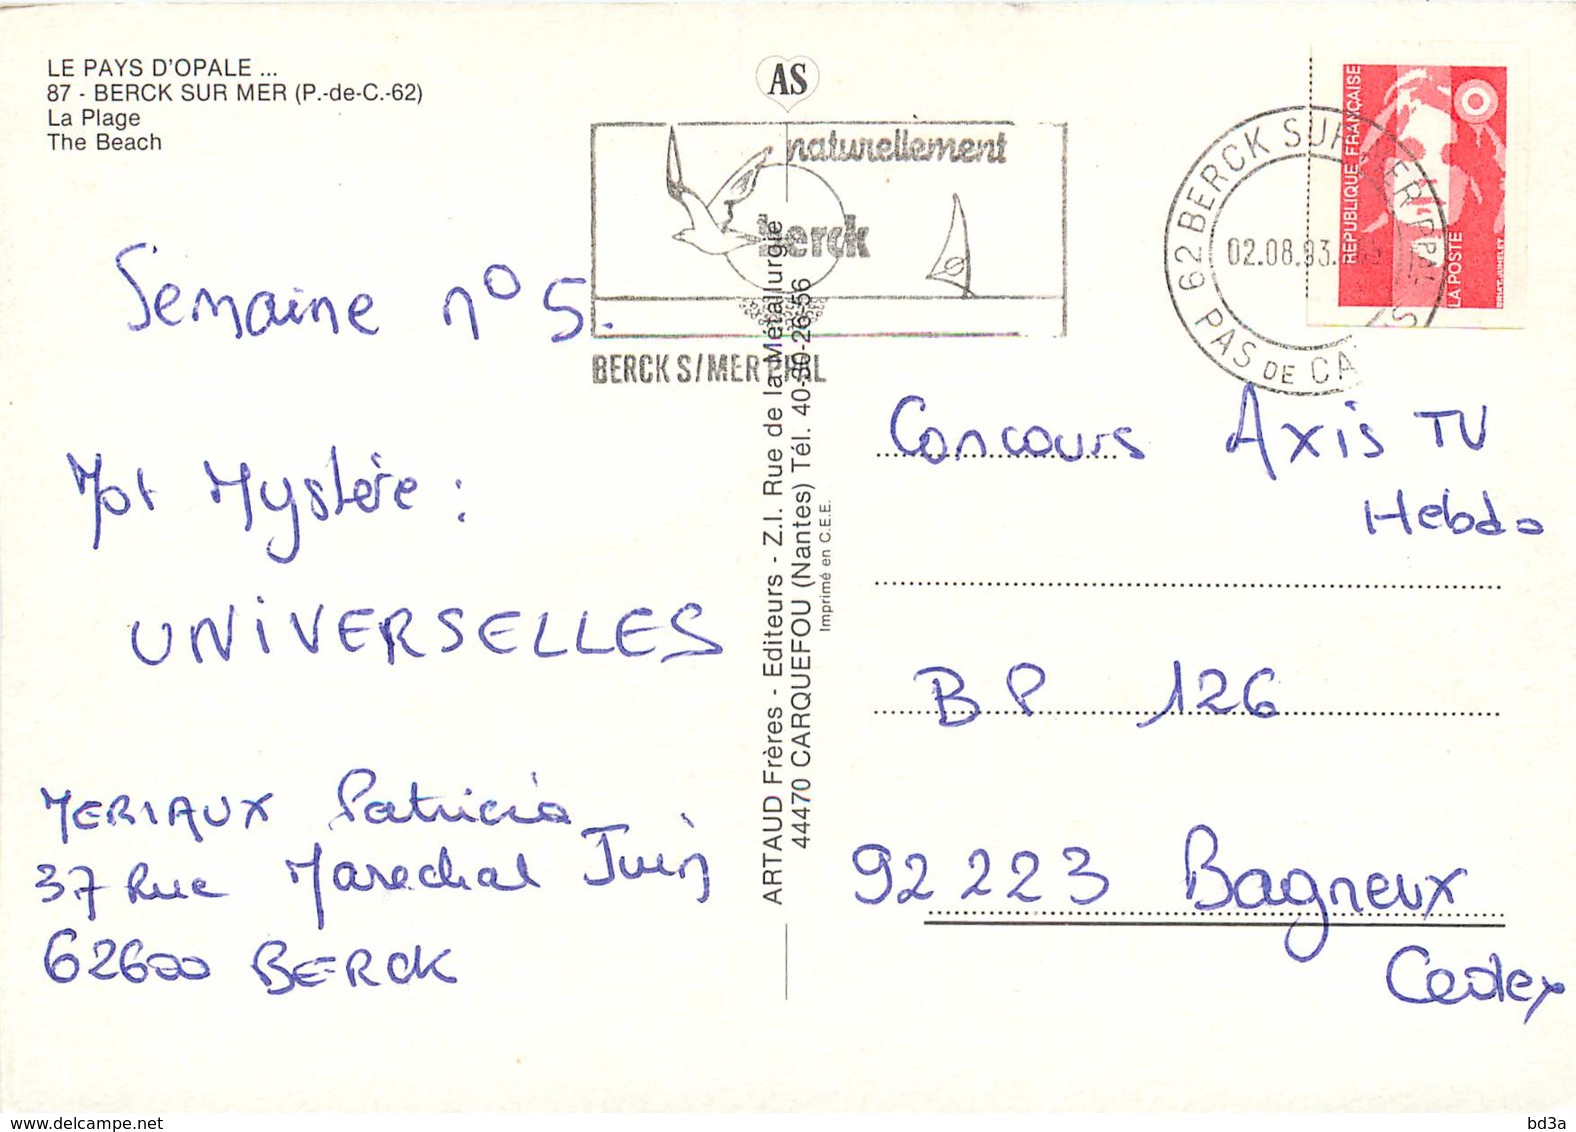 LE PAYS D'OPALE ...
87 - BERCK SUR MER (P.-de-C.-62)
La Plage
The Beach
AS
naturellement
berck
BERCK S/MER PPAL
62 BERCK SUR MER PPAL
PAS DE CA
02.08.93.
REPUBLIQUE FRANÇAISE
LA POSTE
BRIAT-JUMELET
Semaine n° 5.
Mot Mystère :
UNIVERSELLES
MERIAUX Patricia
37 Rue Marechal Juin
62600 BERCK
ARTAUD Frères - Editeurs - Z.I. Rue de la Métallurgie
44470 CARQUEFOU (Nantes) Tél. 40-30-26-56
Imprimé en C.E.E.
Concours Axis TV
Hebdo
BP 126
92 223 Bagneux
Cedex
www.delcampe.net
bd3a